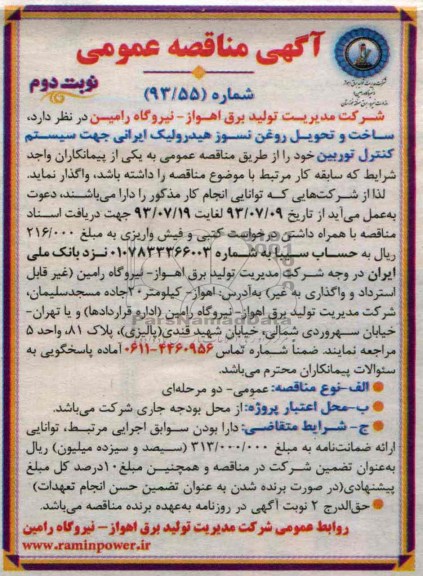 آگهی مناقصه عمومی
نوبت دوم
شماره (۹۳/۵۵)
شرکت مدیریت تولید برق اهواز- نیروگاه رامین در نظر دارد،
ساخت و تحویل روغن نسوز هیدرولیک ایرانی جهت سیستم
کنترل توربین خود را از طریق مناقصه عمومی به یکی از پیمانکاران واجد
شرایط که سابقه کار مرتبط با موضوع مناقصه را داشته باشد، واگذار نماید.
لذا از شرکت‌هایی که توانایی انجام کار مذکور را دارا می‌باشند، دعوت
به‌عمل می‌آید از تاریخ ۹۳/۰۷/۰۹ لغایت ۹۳/۰۷/۱۹ جهت دریافت اسناد
مناقصه با همراه داشتن درخواست کتبی و فیش واریزی به مبلغ ۲۱۶/۰۰۰
ریال به حساب سیبا به شماره ۰۱۰۷۸۳۳۳۶۶۰۰۳ نزد بانک ملی
ایران در وجه شرکت مدیریت تولید برق اهواز- نیروگاه رامین (غیر قابل
استرداد و واگذاری به غیر) به‌آدرس: اهواز- کیلومتر ۲۰جاده مسجدسلیمان،
شرکت مدیریت تولید برق اهواز- نیروگاه رامین (اداره قراردادها) و یا تهران-
خیابان سهروردی شمالی، خیابان شهید قندی(پالیزی)، پلاک ۸۱، واحد ۵
مراجعه نمایند. ضمنا شماره تماس ۴۴۶۰۹۵۶-۰۶۱۱ آماده پاسخگویی به
سئوالات پیمانکاران محترم می‌باشد.
الف-نوع مناقصه: عمومی- دو مرحله‌ای
ب-محل اعتبار پروژه: از محل بودجه جاری شرکت می‌باشد.
ج- شرایط متقاضی: دارا بودن سوابق اجرایی مرتبط، توانایی
ارائه ضمانت‌نامه به مبلغ ۳۱۳/۰۰۰/۰۰۰ (سیصد و سیزده میلیون) ریال
به‌عنوان تضمین شرکت در مناقصه و همچنین مبلغ ۱۰درصد کل مبلغ
پیشنهادی(در صورت برنده شدن به عنوان تضمین حسن انجام تعهدات)
حق‌الدرج ۲ نوبت آگهی در روزنامه به‌عهده برنده مناقصه می‌باشد.
روابط عمومی شرکت مدیریت تولید برق اهواز- نیروگاه رامین
www.raminpower.ir
ParsNamadData